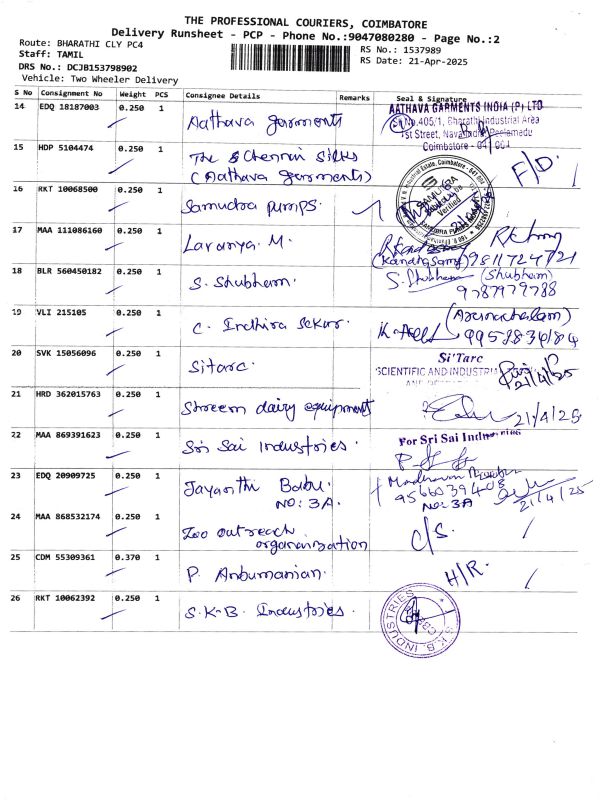 THE PROFESSIONAL COURIERS, COIMBATORE
Delivery Runsheet - PCP - Phone No.:9047080280 - Page No.:2
Route: BHARATHI CLY PC4
RS No.: 1537989
Staff: TAMIL
RS Date: 21-Apr-2025
DRS No.: DCJB153798902
Vehicle: Two Wheeler Delivery
S No Consignment No Weight PCS Consignee Details Remarks Seal & Signature
14 EDQ 18187003 0.250 1 Aathava garments
AATHAVA GARMENTS INDIA (P) LTD
No.405/1, Bharathi Industrial Area
1st Street, Peelamedu
Coimbatore - 641 004
15 HDP 5104474 0.250 1 The Chennai Silks
(Aathava garments) F/D.
16 RKT 10068500 0.250 1 Samudra pumps.
SAMUDRA
Verified
17 MAA 111086160 0.250 1 Lavanya M.
(Kandhasamy) 9811724721
18 BLR 560450182 0.250 1 S. Shubhem. S. Shubhem (Shubhem)
9787979788
19 VLI 215105 0.250 1 C. Indhira Sekar. (Arunachalam)
9958834184
20 SVK 15056096 0.250 1 Sitarc. Si'Tarc
SCIENTIFIC AND INDUSTRIAL
21/4/25
21 HRD 362015763 0.250 1 Shreem dairy equipments 21/4/25
22 MAA 869391623 0.250 1 Sri Sai Industries. For Sri Sai Industries
23 EDQ 20909725 0.250 1 Jayanthi Babu
NO: 3A.
9566039408
NO: 3A 21/4/25
24 MAA 868532174 0.250 1 Zoo outreach
organaization C/S.
25 CDM 55309361 0.370 1 P. Anbumanian. H/R.
26 RKT 10062392 0.250 1 S.K-B. Industries.
S.K.B. INDUSTRIES